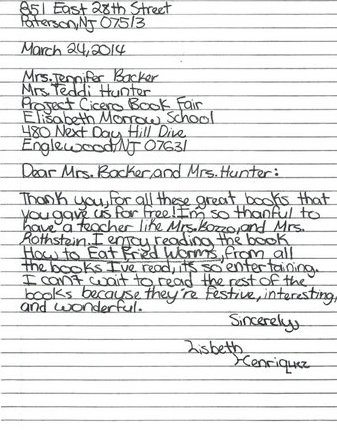 851 East 28th Street
Paterson, NJ 07513
March 24, 2014
Mrs. Jennifer Backer
Mrs. Teddi Hunter
Project Cicero Book Fair
Elisabeth Morrow School
480 Next Day Hill Dive
Englewood, NJ 07631
Dear Mrs. Backer, and Mrs. Hunter:
Thank you, for all these great books that
you gave us for free! I'm so thanful to
have a teacher like Mrs. Bozzo, and Mrs.
Rothstein. I enjoy reading the book
How to Eat Fried Worms, from all
the books I've read, it's so entertaining.
I can't wait to read the rest of the
books because they're festive, interesting,
and wonderful.
Sincerely,
Lisbeth
Henriquez